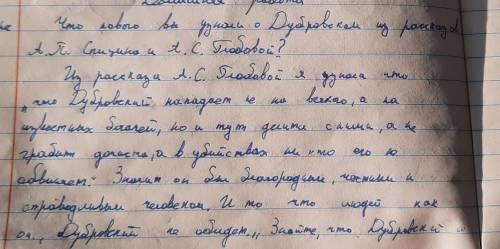 Домашняя работа
Что нового вы узнали о Дубровском из рассказов
А.П. Спицина и А.С. Глобовой?
Из рассказа А.С. Глобовой я узнала что
"что Дубровский, нападает не на всякого, а на
известных богачей, но и тут делится с ними, а не
грабит дочиста, а в убийствах ни кто его не
обвиняет." Значит он был благородным, честным и
справедливым человеком. И то что людей как
он, „Дубровский не обидет„ Знайте, что Дубровский